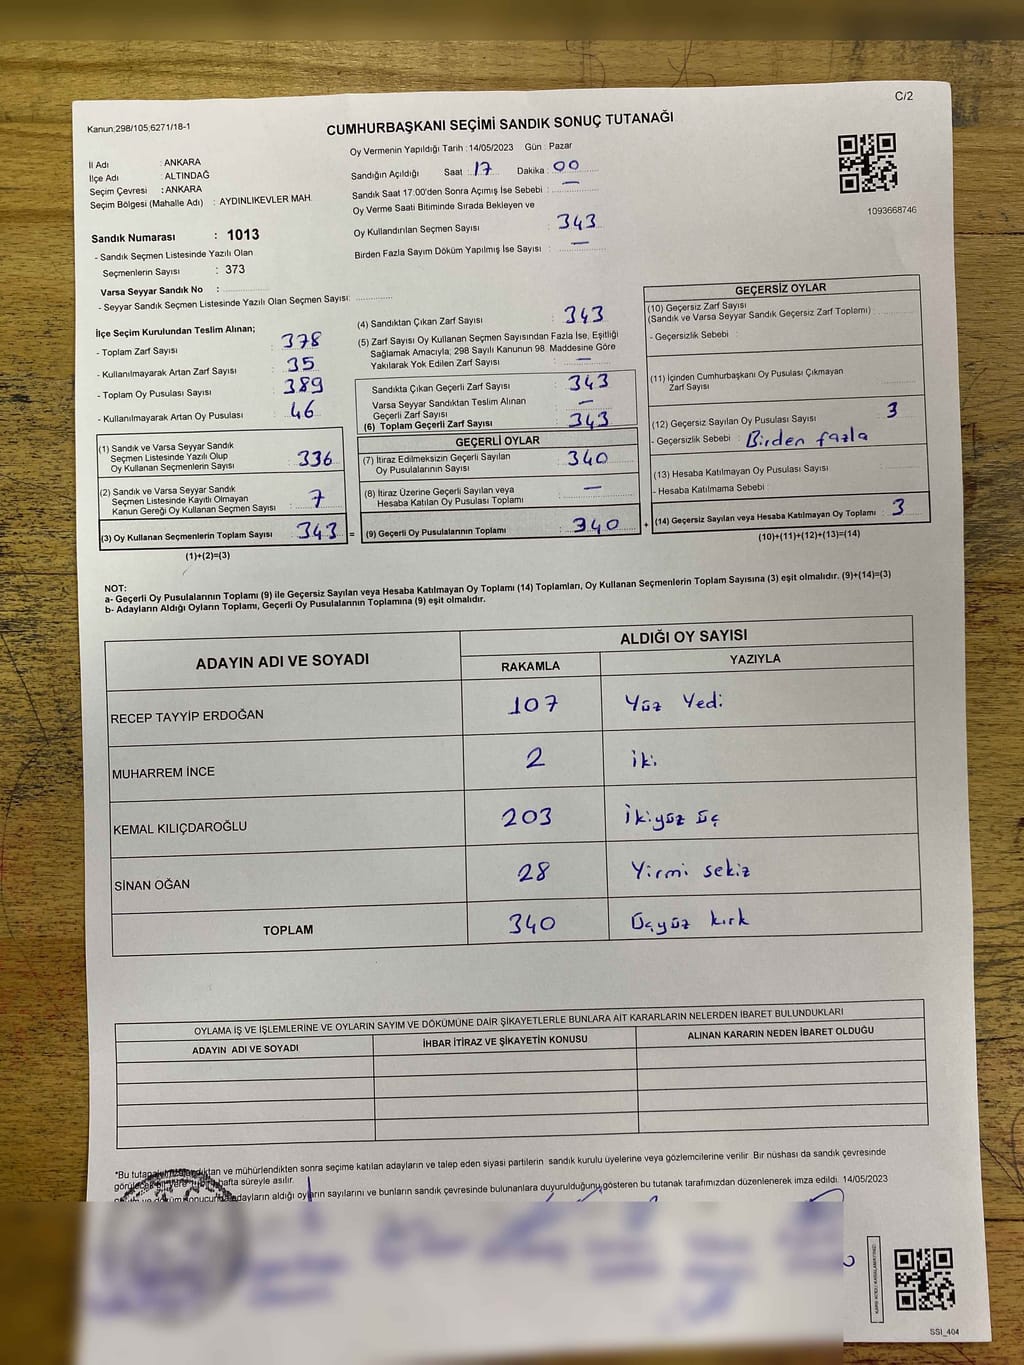 C/2
Kanun;298/105;6271/18-1
CUMHURBAŞKANI SEÇİMİ SANDIK SONUÇ TUTANAĞI
İl Adı : ANKARA
İlçe Adı : ALTINDAĞ
Seçim Çevresi : ANKARA
Seçim Bölgesi (Mahalle Adı) : AYDINLIKEVLER MAH.
Sandık Numarası : 1013
- Sandık Seçmen Listesinde Yazılı Olan
Seçmenlerin Sayısı : 373
Varsa Seyyar Sandık No :
- Seyyar Sandık Seçmen Listesinde Yazılı Olan Seçmen Sayısı:
Oy Vermenin Yapıldığı Tarih : 14/05/2023 Gün : Pazar
Sandığın Açıldığı Saat : 17 Dakika : 00
Sandık Saat 17:00'den Sonra Açımış İse Sebebi : —
Oy Verme Saati Bitiminde Sırada Bekleyen ve
Oy Kullandırılan Seçmen Sayısı : 343
Birden Fazla Sayım Döküm Yapılmış İse Sayısı : —
1093668746
İlçe Seçim Kurulundan Teslim Alınan;
- Toplam Zarf Sayısı : 378
- Kullanılmayarak Artan Zarf Sayısı : 35
- Toplam Oy Pusulası Sayısı : 389
- Kullanılmayarak Artan Oy Pusulası : 46
(1) Sandık ve Varsa Seyyar Sandık
Seçmen Listesinde Yazılı Olup
Oy Kullanan Seçmenlerin Sayısı : 336
(2) Sandık ve Varsa Seyyar Sandık
Seçmen Listesinde Kayıtlı Olmayan
Kanun Gereği Oy Kullanan Seçmen Sayısı : 7
(3) Oy Kullanan Seçmenlerin Toplam Sayısı : 343 =
(1)+(2)=(3)
(4) Sandıktan Çıkan Zarf Sayısı : 343
(5) Zarf Sayısı Oy Kullanan Seçmen Sayısından Fazla İse, Eşitliği
Sağlamak Amacıyla; 298 Sayılı Kanunun 98. Maddesine Göre
Yakılarak Yok Edilen Zarf Sayısı : —
Sandıkta Çıkan Geçerli Zarf Sayısı : 343
Varsa Seyyar Sandıktan Teslim Alınan
Geçerli Zarf Sayısı : —
(6) Toplam Geçerli Zarf Sayısı : 343
GEÇERLİ OYLAR
(7) İtiraz Edilmeksizin Geçerli Sayılan
Oy Pusulalarının Sayısı : 340
(8) İtiraz Üzerine Geçerli Sayılan veya
Hesaba Katılan Oy Pusulaları Toplamı : —
(9) Geçerli Oy Pusulalarının Toplamı : 340 +
GEÇERSİZ OYLAR
(10) Geçersiz Zarf Sayısı
(Sandık ve Varsa Seyyar Sandık Geçersiz Zarf Toplamı) :
- Geçersizlik Sebebi :
(11) İçinden Cumhurbaşkanı Oy Pusulası Çıkmayan
Zarf Sayısı :
(12) Geçersiz Sayılan Oy Pusulası Sayısı : 3
- Geçersizlik Sebebi : Birden fazla
(13) Hesaba Katılmayan Oy Pusulası Sayısı :
- Hesaba Katılmama Sebebi :
(14) Geçersiz Sayılan veya Hesaba Katılmayan Oy Toplamı : 3
(10)+(11)+(12)+(13)=(14)
NOT:
a- Geçerli Oy Pusulalarının Toplamı (9) ile Geçersiz Sayılan veya Hesaba Katılmayan Oy Toplamı (14) Toplamları, Oy Kullanan Seçmenlerin Toplam Sayısına (3) eşit olmalıdır. (9)+(14)=(3)
b- Adayların Aldığı Oyların Toplamı, Geçerli Oy Pusulalarının Toplamına (9) eşit olmalıdır.
ADAYIN ADI VE SOYADI ALDIĞI OY SAYISI
RAKAMLA YAZIYLA
RECEP TAYYİP ERDOĞAN 107 Yüz Yedi
MUHARREM İNCE 2 İki
KEMAL KILIÇDAROĞLU 203 İkiyüz üç
SİNAN OĞAN 28 Yirmi sekiz
TOPLAM 340 Üçyüz kırk
OYLAMA İŞ VE İŞLEMLERİNE VE OYLARIN SAYIM VE DÖKÜMÜNE DAİR ŞİKAYETLERLE BUNLARA AİT KARARLARIN NELERDEN İBARET BULUNDUKLARI
ADAYIN ADI VE SOYADI İHBAR İTİRAZ VE ŞİKAYETİN KONUSU ALINAN KARARIN NEDEN İBARET OLDUĞU
*Bu ve mühürlendikten sonra seçime katılan adayların ve talep eden siyasi partilerin sandık kurulu üyelerine veya gözlemcilerine verilir. Bir nüshası da sandık çevresinde
hafta süreyle asılır.
adayların aldığı oyların sayılarını ve bunların sandık çevresinde bulunanlara duyurulduğunu gösteren bu tutanak tarafımızdan düzenlenerek imza edildi. 14/05/2023
SSİ_404